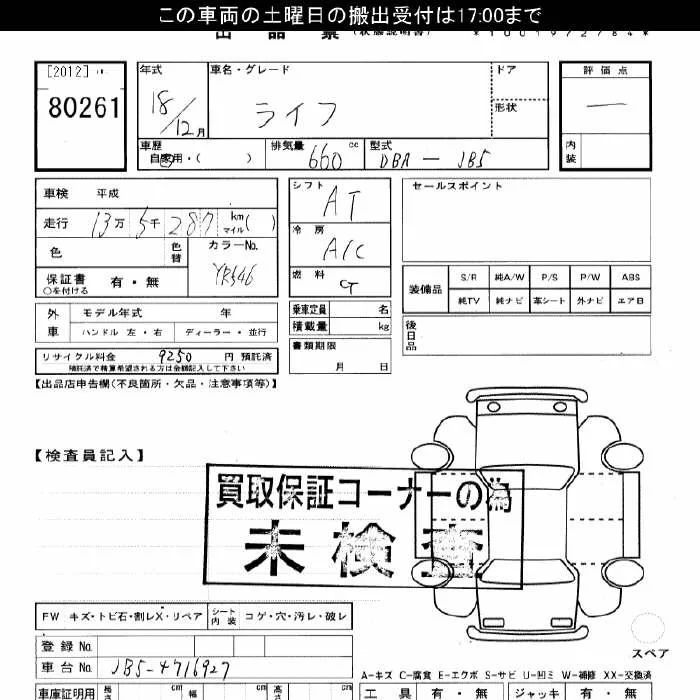 この車両の土曜日の搬出受付は17:00まで
出品票(状態説明書)
[2012]
80261
年式 18/12月
車名・グレード ライフ
ドア
形状
評価点 —
内装
車歴 自家用・( )
排気量 660 cc
型式 DBA - JB5
車検 平成
走行 13万 5千 287 km マイル( )
色 色替
カラーNo. YR546
保証書 有・無
○を付ける
シフト AT
冷房 A/C
燃料 G
セールスポイント
装備品 S/R 純A/W P/S P/W ABS
純TV 純ナビ 革シート 外ナビ エアB
外車 モデル年式 年
ハンドル 左・右 ディーラー・並行
乗車定員 名
積載量 kg
後日品
リサイクル料金 9250 円 預託済
預託済で精算希望される方は金額記入して下さい
書類期限 月 日
【出品店申告欄(不良箇所・欠品・注意事項等)】
【検査員記入】
買取保証コーナーの為
未検査
FW キズ・トビ石・割レX・リペア
シート内装 コゲ・穴・汚レ・破レ
登録No.
車台No. JB5-4716927
スペア
A-キズ C-腐食 E-エクボ S-サビ U-凹ミ W-補修 XX-交換済
車庫証明用 長さ cm 幅 cm 高さ cm
工具 有・無 ジャッキ 有・無